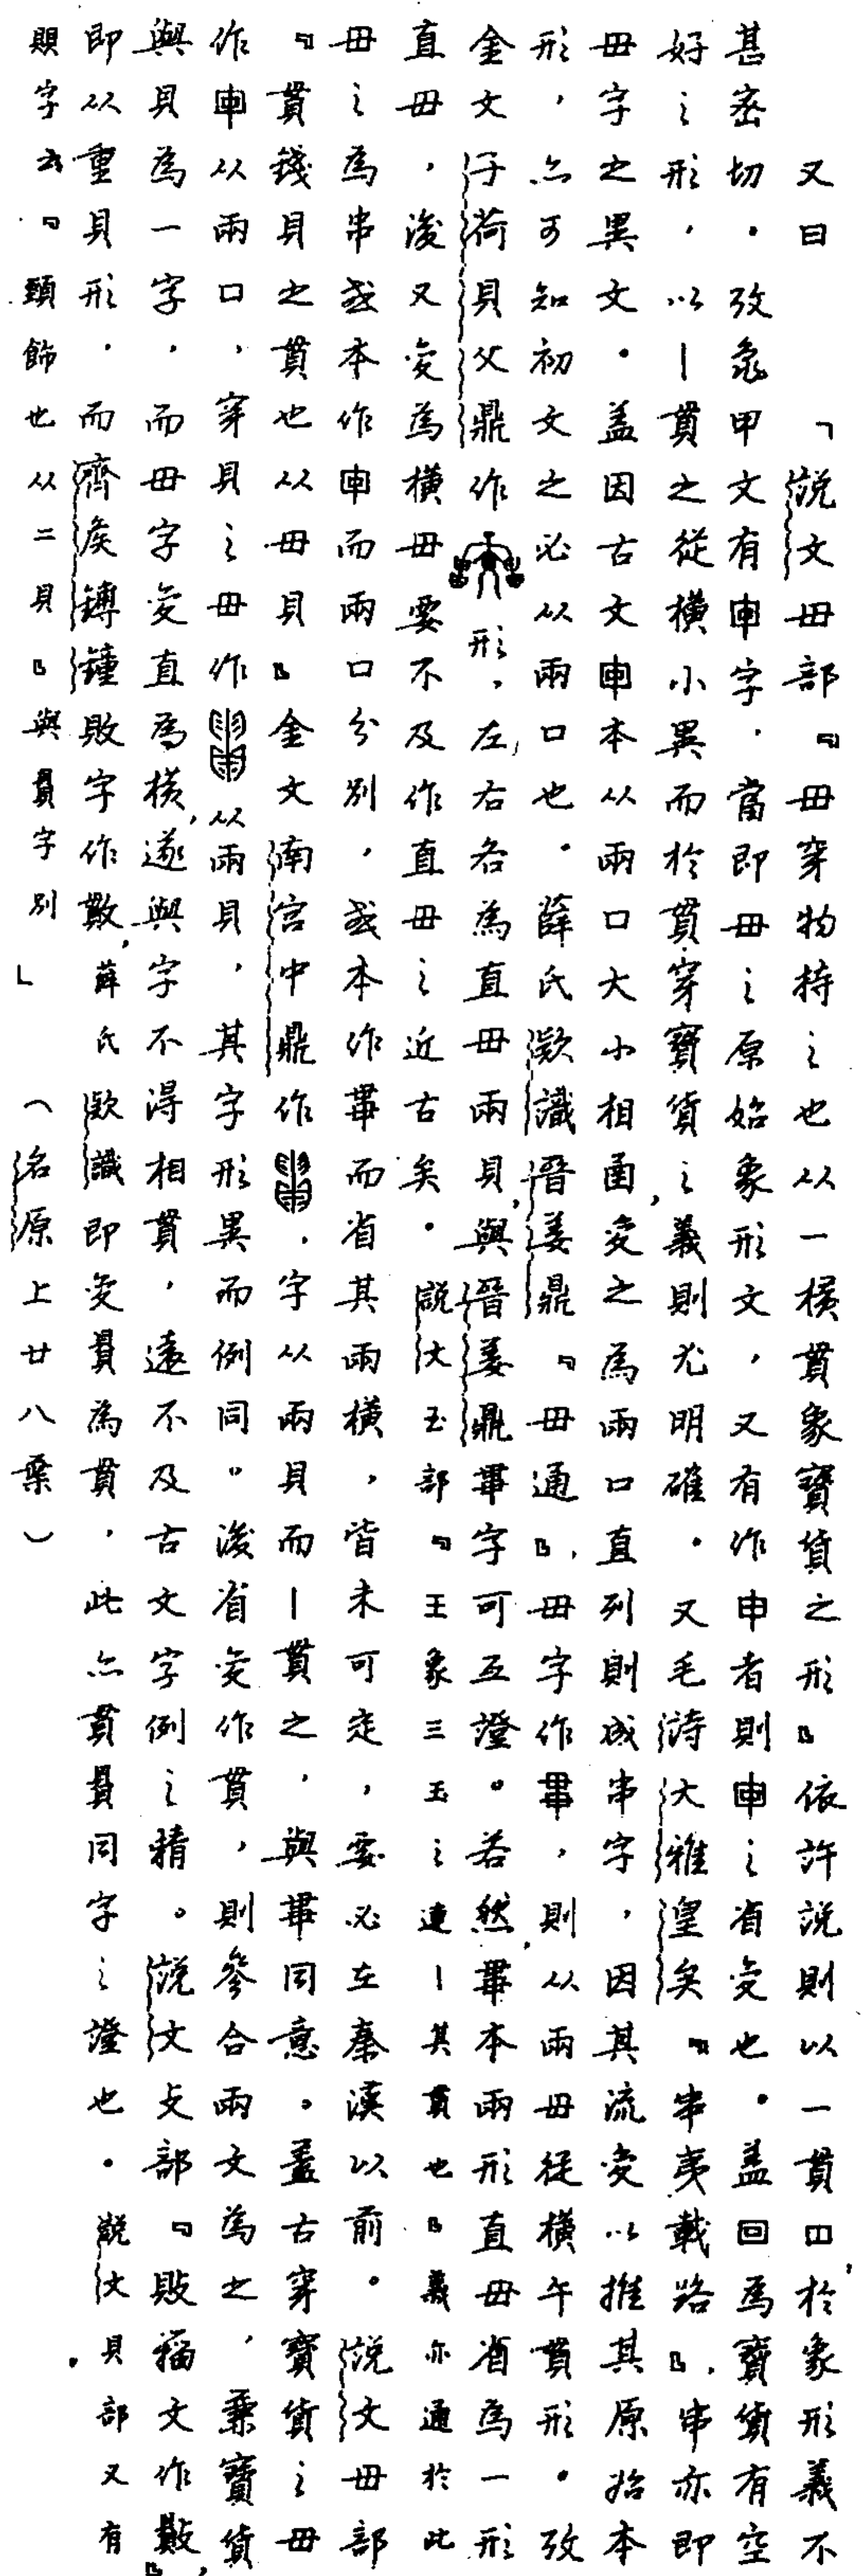 又曰「說文毌部『毌穿物持之也从一橫貫象寶貨之形』依許說則以一貫囗,於象形義不
甚密切.攷龜甲文有申字.當即毌之原始象形文,又有作申者則申之省变也.盖回爲寶貨有空
好之形,以丨貫之從橫小異而於貫穿寶貨之義則尤明確.又毛詩大雅皇矣『串夷載路』,串亦即
毌字之異文.盖因古文申本从兩口大小相函,变之為兩口直列則成串字,因其流变以推其原始本
形,亦可知初文之必从兩口也.薛氏欵識晋姜鼎『毌通』,毌字作,則从兩毌從橫午貫形.攷
金文子荷貝父鼎作形,左右各為直毌兩貝,與晋姜鼎字可互證。若然,本兩形直毌省為一形
直毌,後又变為橫毌要不及作直毌之近古矣.說文玉部『王象三玉之連丨其貫也』義亦通於此
毌之為串或本作申而兩口分別,或本作而省其兩橫,皆未可定,要必在秦漢以前。說文毌部
『貫錢貝之貫也从毌貝』金文南宮中鼎作,字从兩貝而丨貫之,與同意。蓋古穿寶貨之毌
作申从兩口,穿貝之毌作从兩貝,其字形異而例同。後省变作貫,則參合兩文為之,棄寶貨
與貝為一字,而毌字变直為橫,遂與字不得相貫,遠不及古文字例之精。說文攴部『敗籀文作敗』,
即从重貝形.而齊矦鎛鐘敗字作,薛氏欵識即变為貫,此亦貫同字之證也.說文貝部又有
賏字云『頸飾也从二貝』與字別」(名原上廿八葉)